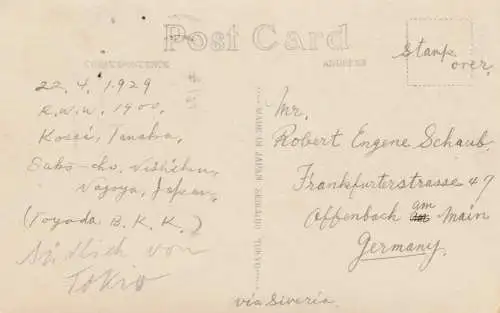 Post Card
CORRESPONDENCE
ADDRESS
Stamp
over.
22. 4. 1929
R.W.W. 1900.
Kosei, Tanaka,
Sako-cho, Nishiku,
Nagoya, Japan,
(Toyoda B. K. K.)
Südlich von
Tokio
MADE IN JAPAN SEKAIDO TOKYO
Mr,
Robert Eugene Schaub.
Frankfurterstrasse 47
Offenbach am Main
Germany.
via Siveria.